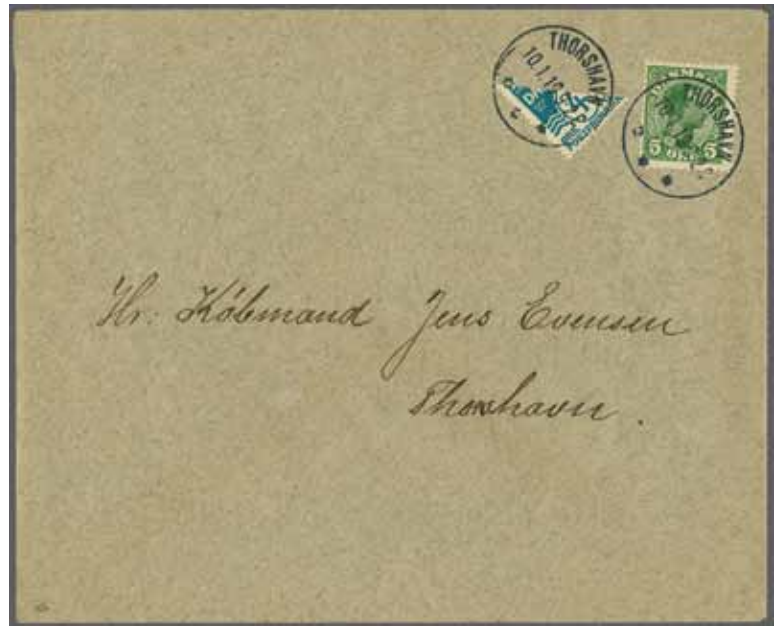 THORSHAVN
10.1.19
4
THORSHAVN
5 ØRE 5
Hr. Købmand Jens Evensen
Thorshavn.